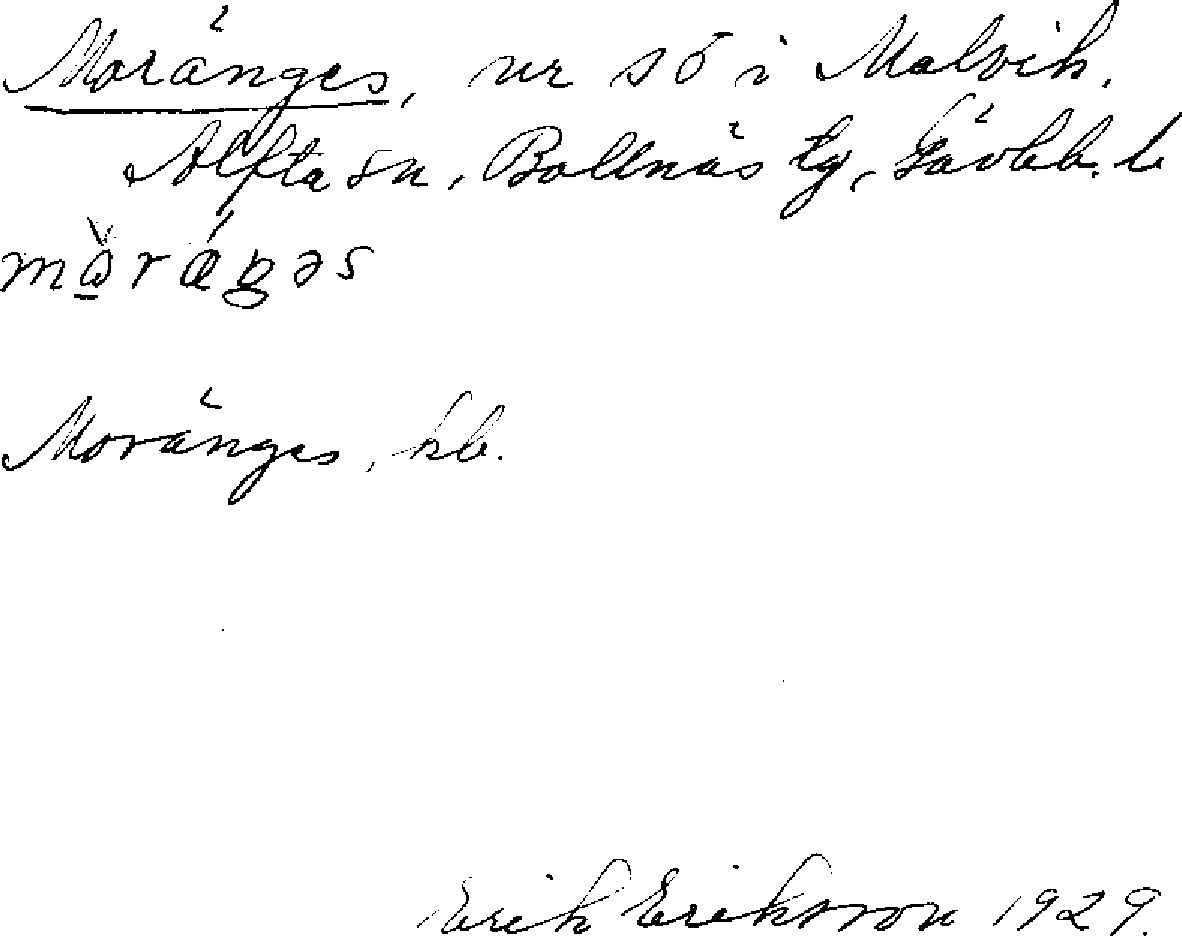 Moränges, nr 56 i Malvik.
Alfta sn, Bollnäs tg, Gävleb. l
Moränges, kb.
Erik Eriksson 1929.